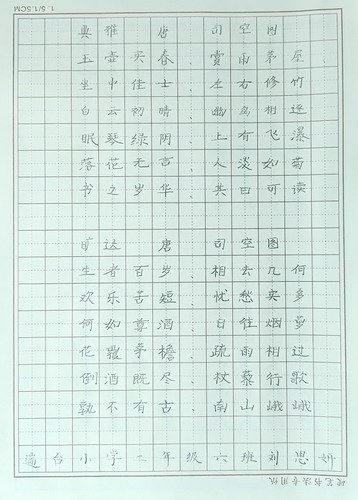 1.5/1.5CM
典雅 唐 司空图
玉壶买春、赏雨茅屋
坐中佳士、左右修竹
白云初晴、幽鸟相逐
眠琴绿阴、上有飞瀑
落花无言、人淡如菊
书之岁华、其曰可读
旷达 唐 司空图
生者百岁、相去几何
欢乐苦短、忧愁实多
何如尊酒、日往烟萝
花覆茅檐、疏雨相过
倒酒既尽、杖藜行歌
孰不有古、南山峨峨
台小学二年级六班刘思妍
硬笔书法专用纸